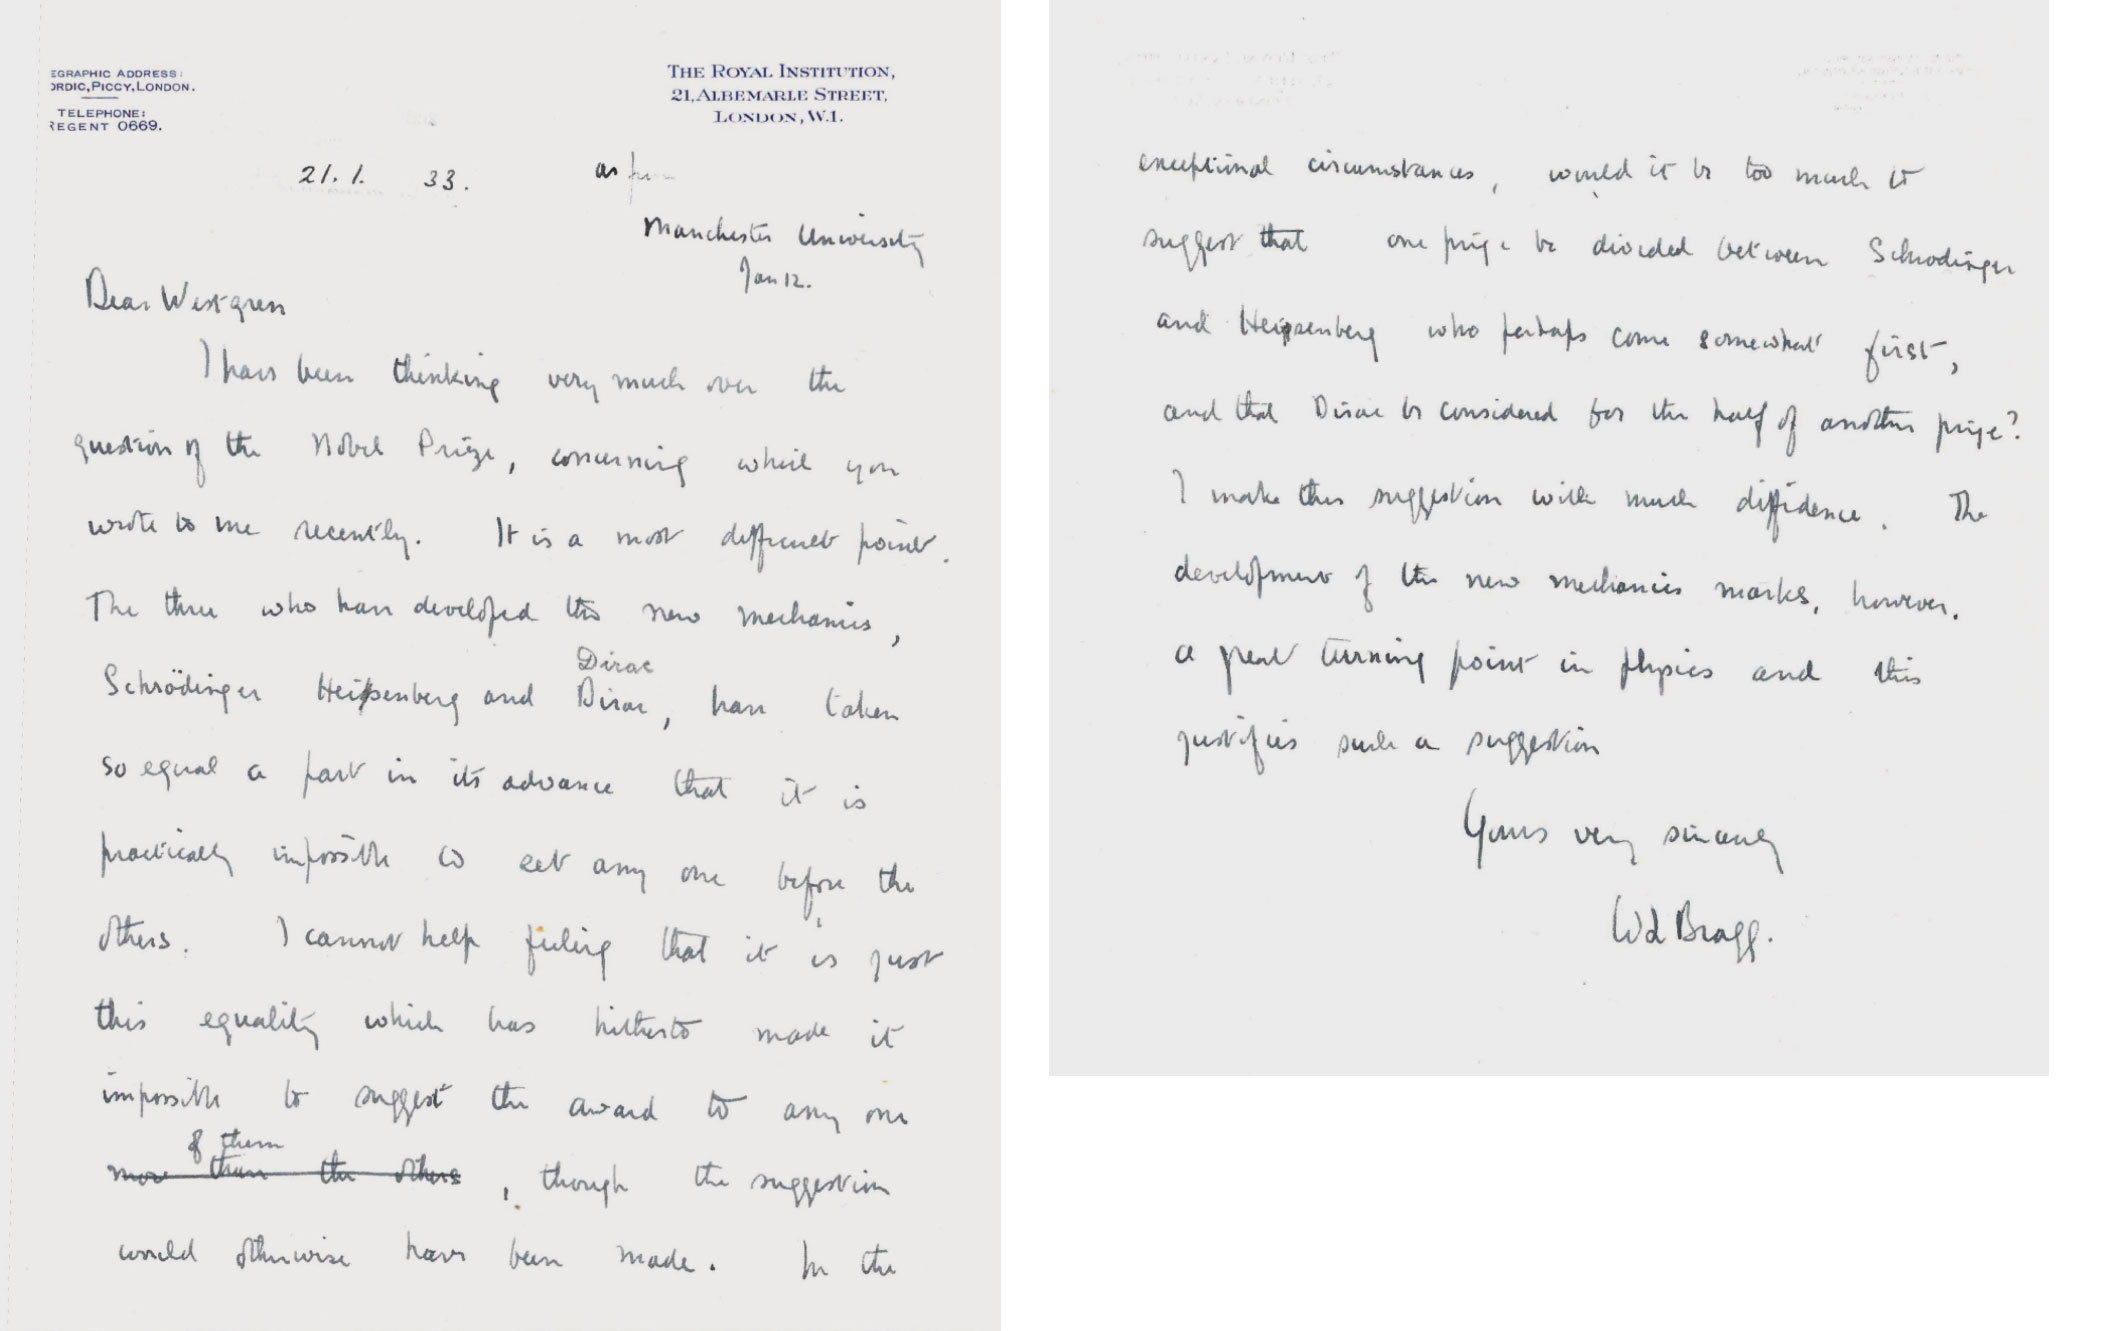 EGRAPHIC ADDRESS:
ORDIC, PICCY, LONDON.
TELEPHONE:
REGENT 0669.
THE ROYAL INSTITUTION,
21, ALBEMARLE STREET,
LONDON, W.1.
21. 1. 33.
as from
Manchester University
Jan 12.
Dear Westgren
I have been thinking very much over the
question of the Nobel Prize, concerning which you
wrote to me recently. It is a most difficult point.
The three who have developed the new mechanics,
Dirac
Schrödinger Heisenberg and Dirac, have taken
so equal a part in its advance that it is
practically impossible to set any one before the
others. I cannot help feeling that it is just
this equality which has hitherto made it
impossible to suggest the award to any one
of them
more than the others, though the suggestion
would otherwise have been made. In the
exceptional circumstances, would it be too much to
suggest that one prize be divided between Schrodinger
and Heisenberg who perhaps come somewhat first,
and that Dirac be considered for the half of another prize?
I make this suggestion with much diffidence. The
development of the new mechanics marks, however,
a great turning point in physics and this
justifies such a suggestion
Yours very sincerely
W L Bragg.